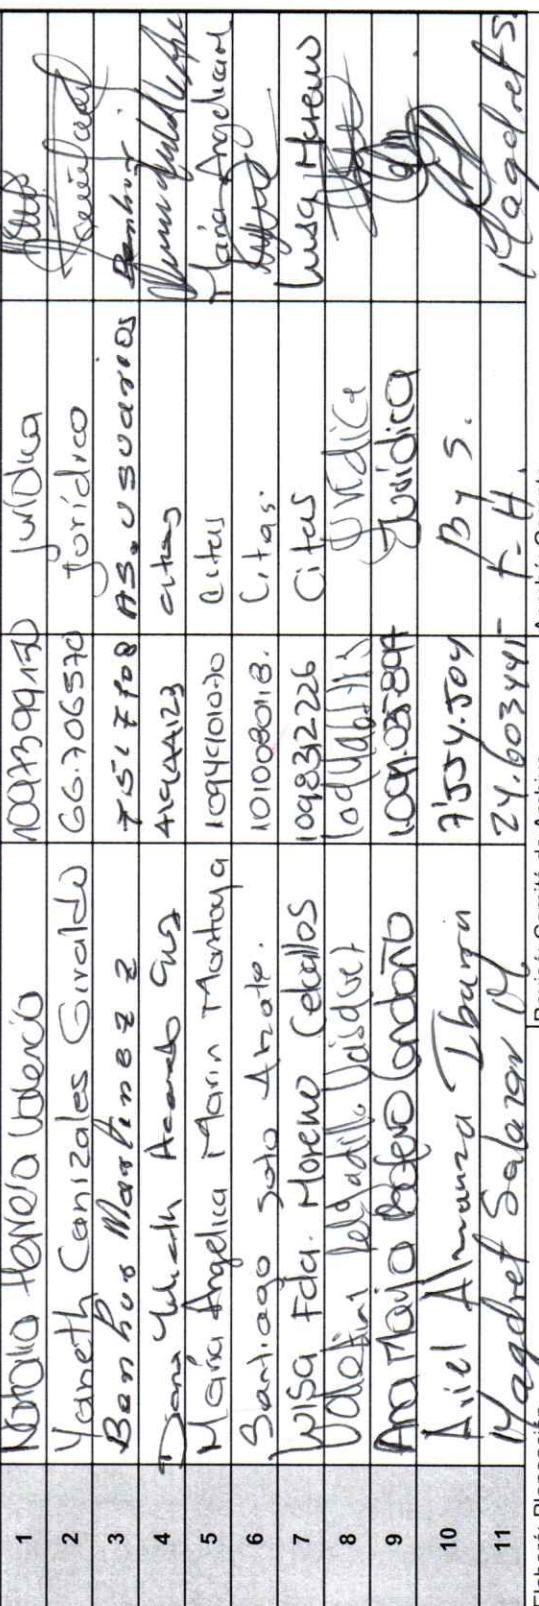 1 Natalia Herrera Valencia 1097399150 Jurídica
2 Yaneth Canizales Giraldo 66.706570 Jurídico
3 Benhur Martinez z 7517708 AS. USUARIOS Benhur
4 Diana Acevedo 41944123 citas
5 María Angelica Marin Montoya 1094901070 Citas Maria Angelica M
6 Santiago Soto Alzate. 1010080118. Citas.
7 Luisa Fda. Moreno Ceballos 1098312226 Citas Luisa Moreno
8 Valentina Delgadillo Jurídica
9 Ana Maria Botero Londoño Jurídica
10 Ariel Almanza Ibarra 7'554.504 By S.
11 Magdret Salazar M 24.603445 T-H. Magdret S.
Elaboró: Planeación
Revisó: Comité de Archivo